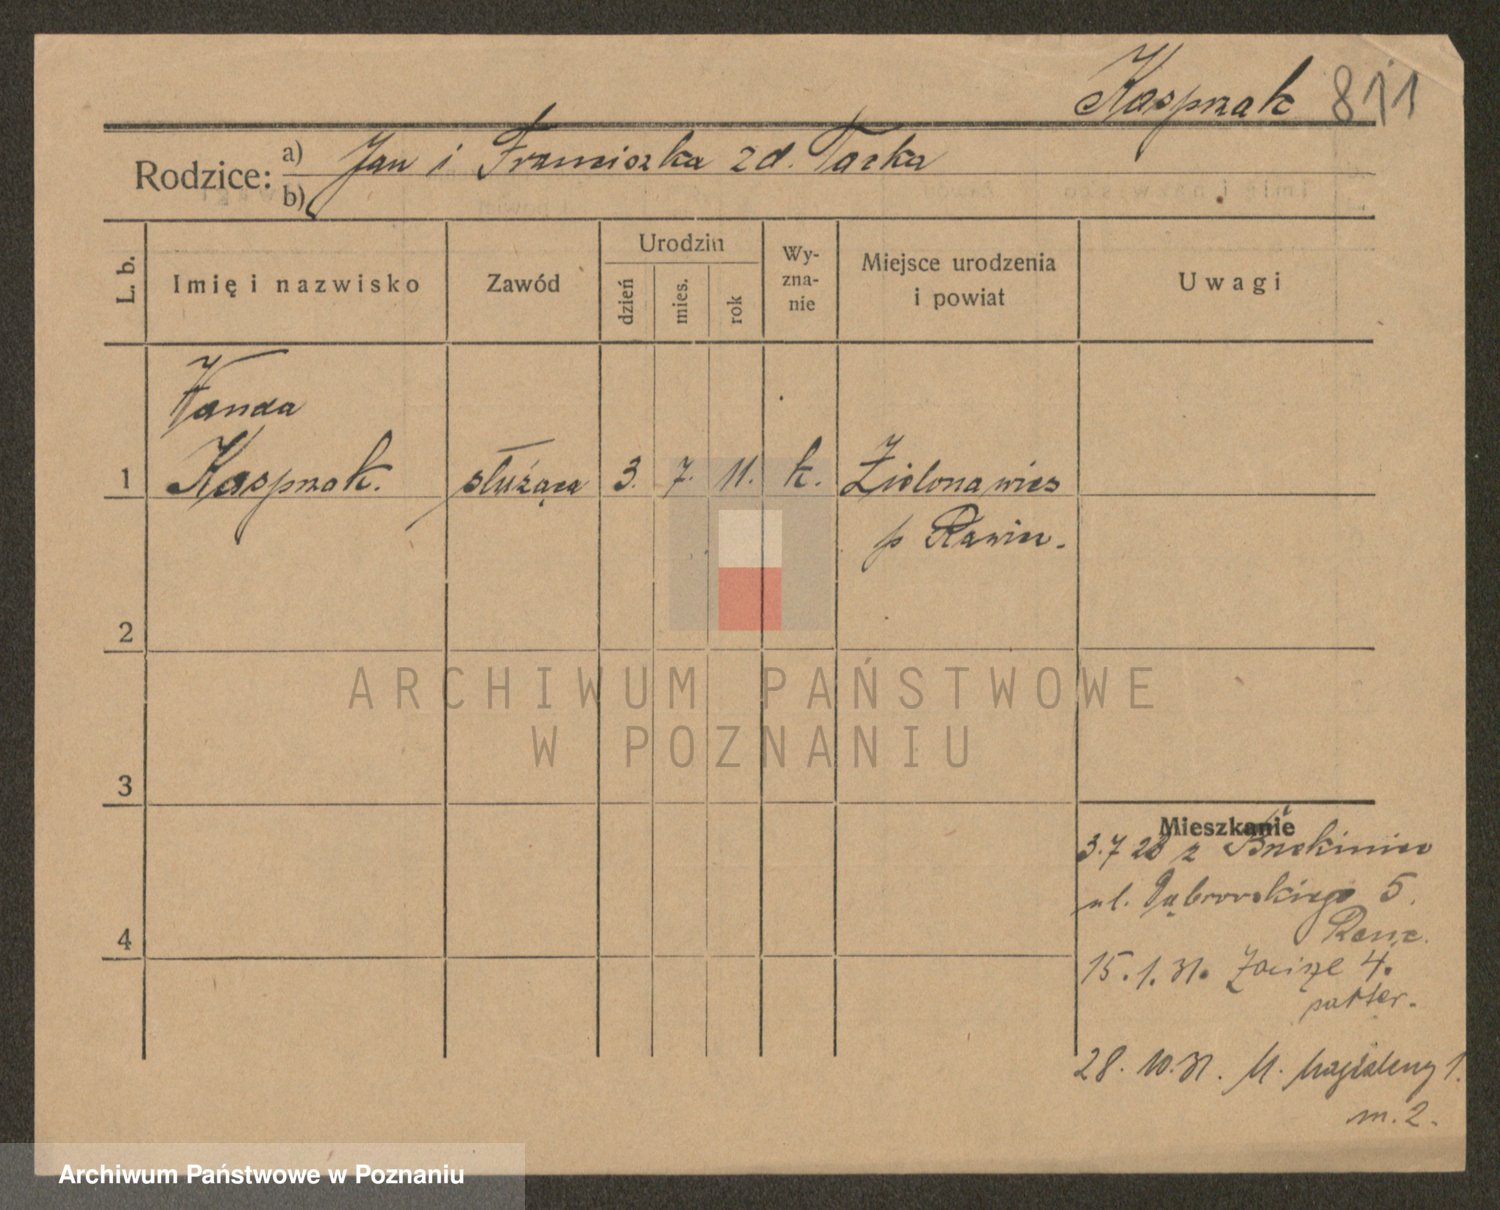 Kasprzak 811
Rodzice: a) Jan i Franciszka zd. Tacka
b)
L. b.
Imię i nazwisko
Zawód
Urodzin
dzień
mies.
rok
Wy-
zna-
nie
Miejsce urodzenia
i powiat
Uwagi
Wanda
1 Kasprzak. służąca 3. 7. 11. k. Zielonawieś
p Rawicz.
2
3
4
Mieszkanie
3.7 28 z
ul. Dąbrowskiego 5.
15.1.31. Zacisze 4.
parter.
28.10.31. M. Magdaleny 1.
m. 2.
ARCHIWUM PAŃSTWOWE
W POZNANIU
Archiwum Państwowe w Poznaniu